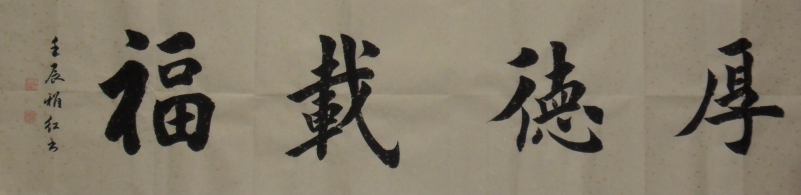 厚德載福
壬辰娟红书